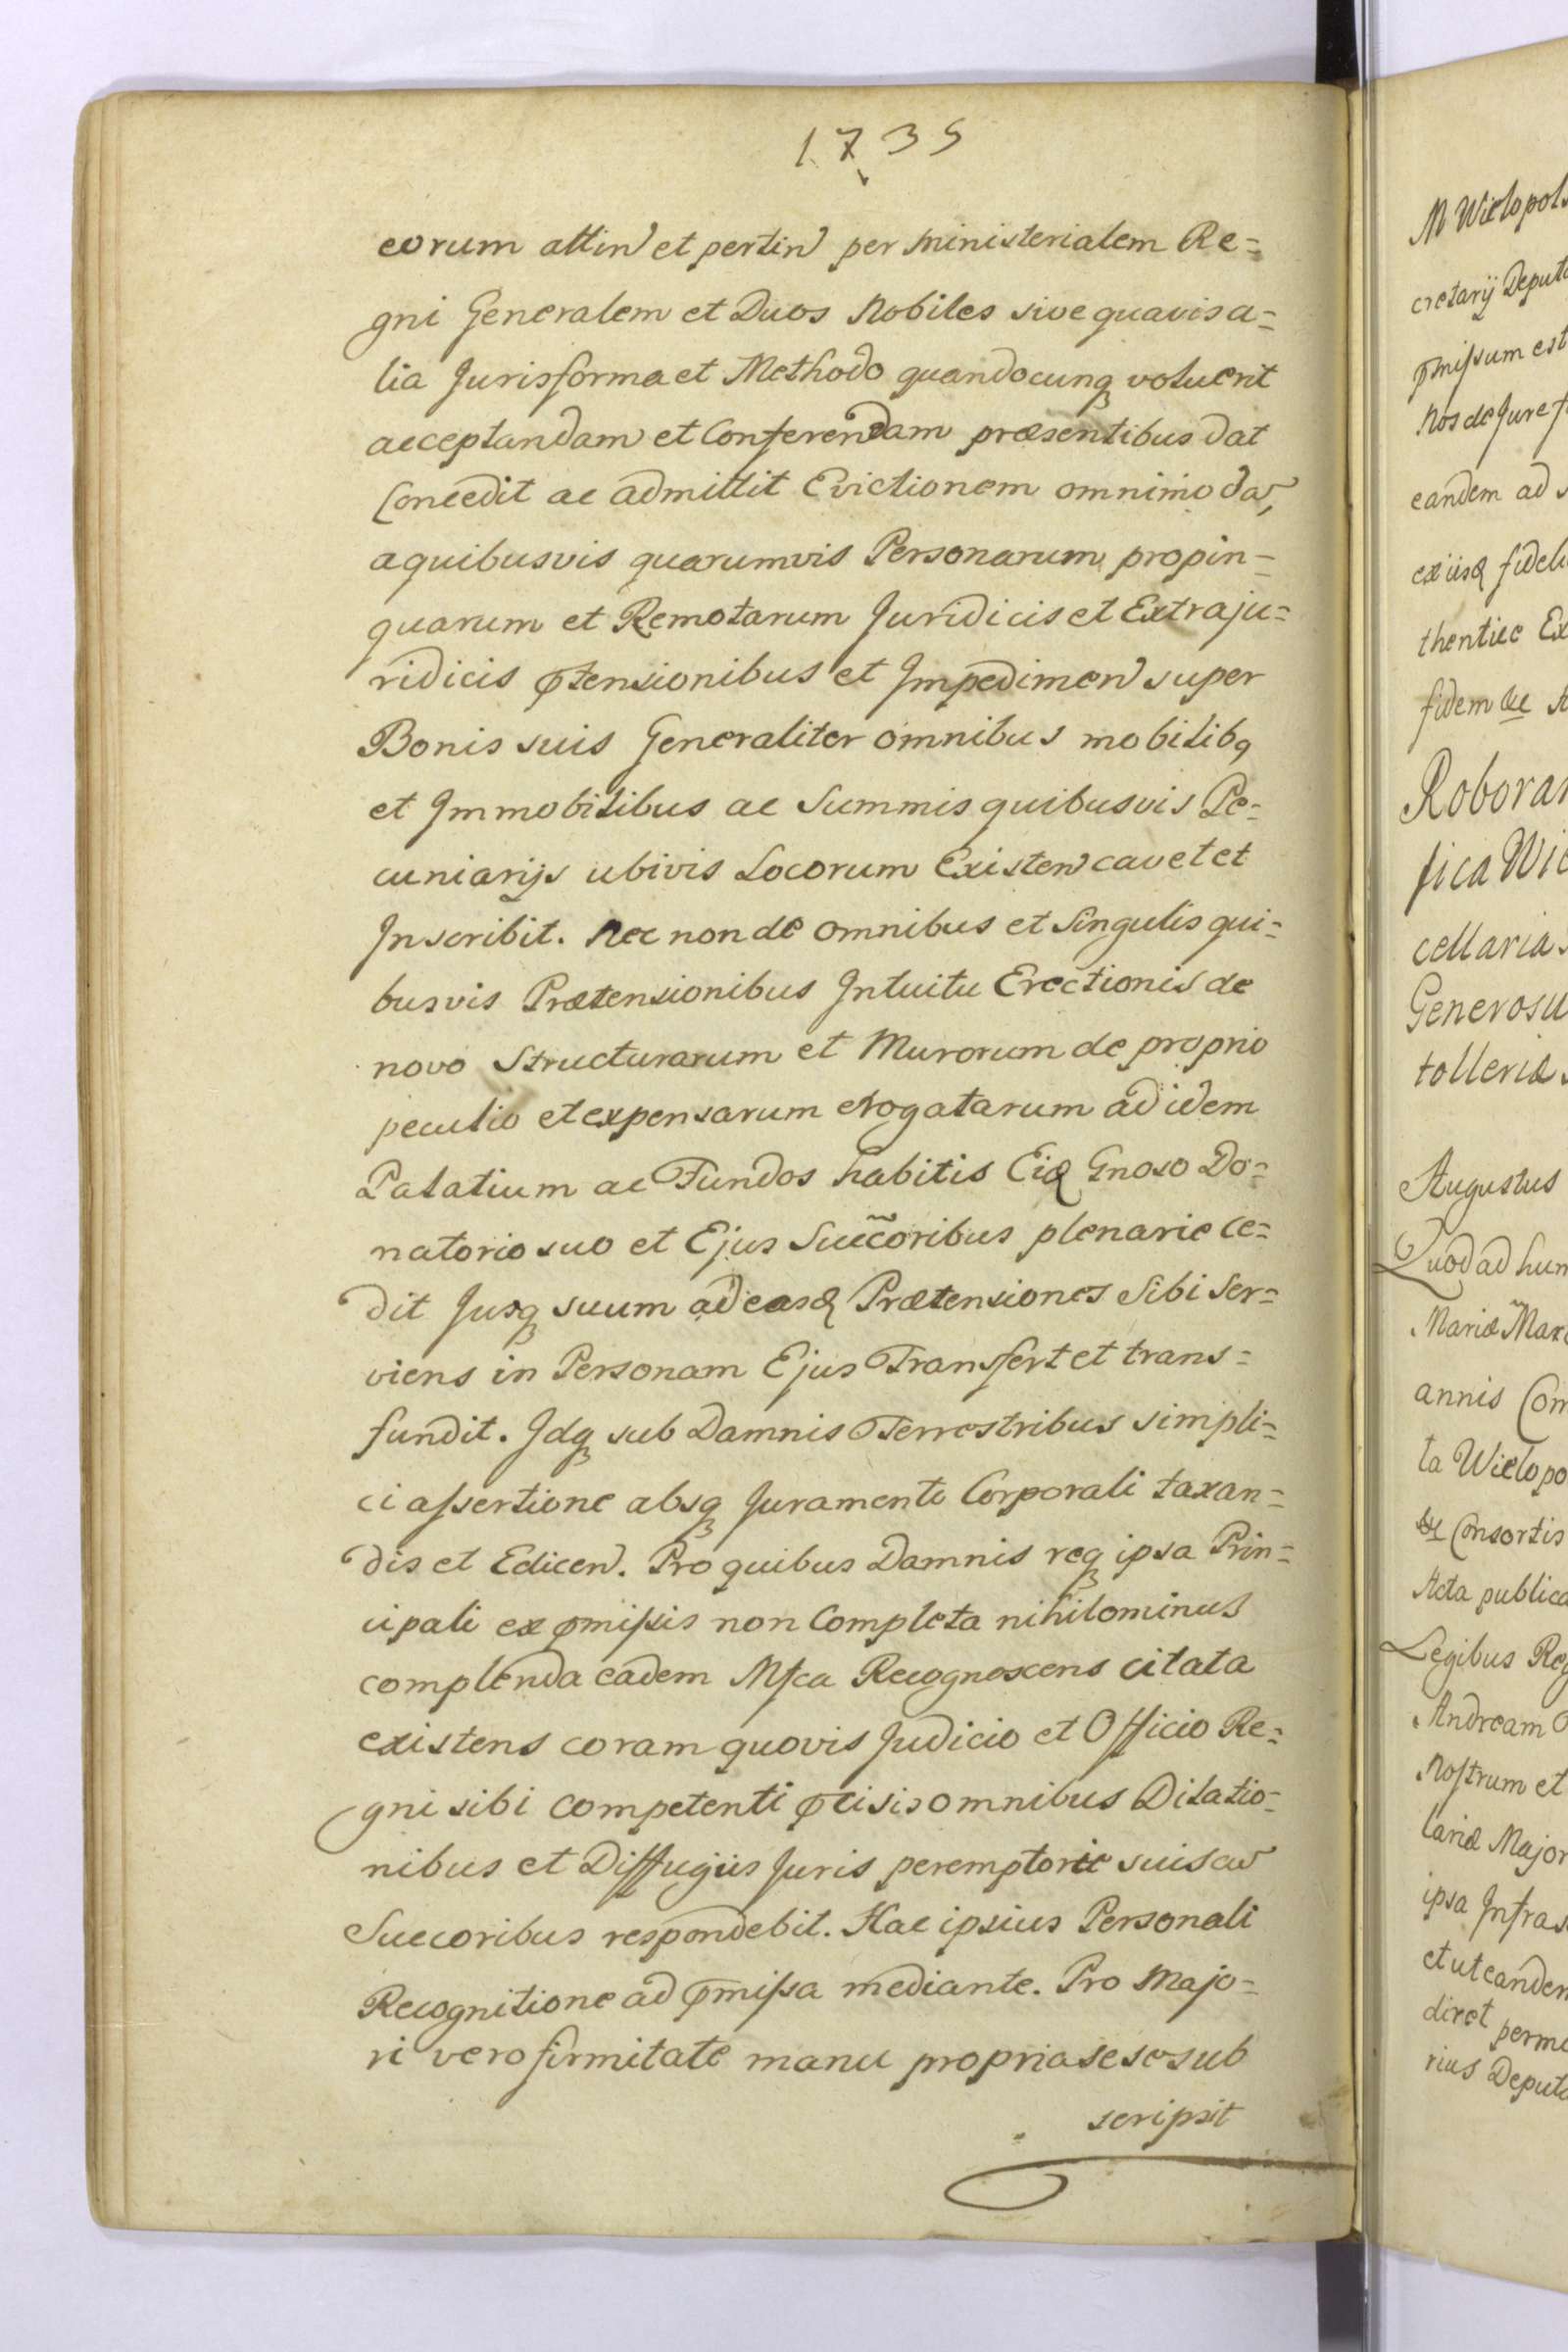 1735
eorum attin et pertin per Ministerialem Re=
gni Generalem et Duos Nobiles sive quavis a=
lia Juris forma et Methodo quandocunq voluerit
acceptandam et Conferendam præsentibus dat
Concedit ac admittit Evictionem omnimoda,
a quibusvis quarumvis Personarum propin=
quarum et Remotarum Juridicis et Extraju=
ridicis ptensionibus et Impedimen super
Bonis suis Generaliter omnibus mobilibq
et Immobilibus ac Summis quibusvis Pe=
cuniarijs ubivis Locorum Existen cavet et
Inscribit. Nec non de omnibus et Singulis qui=
busvis Prætensionibus Intuitu Erectionis de
novo Structurarum et Murorum de proprio
peculio et expensarum erogatarum ad idem
Palatium ac Fundos habitis Eiq Gnoso Do=
natorio suo et Ejus Succoribus plenarie ce=
dit Jusq suum ad easq Prætensiones Sibi Ser=
viens in Personam Ejus Transfert et trans=
fundit. Idq sub Damnis Terrestribus simpli=
ci assertione absq Juramento Corporali taxan=
dis et Edicen. Pro quibus Damnis req ipsa Prin=
cipali ex pmissis non Completa nihilominus
complenda eadem Mfca Recognoscens citata
existens coram quovis Judicio et Officio Re=
gni sibi competenti pcisis omnibus Dilatio=
nibus et Diffugiis Juris peremptorie suis cu
Succoribus respondebit. Hac ipsius Personali
Recognitione ad pmissa mediante. Pro Majo=
ri vero firmitate manu propria sese sub
scripsit
M Wielopols
cretarij Deputa
pmissum est
Nos de Jure
eandem ad
ex iisq fideli
thentice Ex
fidem &c
Roborar
fica Wie
cellaria
Generosu
tolleriæ
Augustus
Quod ad hun
Mariæ
annis Com
ta Wielopo
Consortis
Acta publica
Legibus Reg
Andream
Nostrum et
lariæ Major
ipsa Infras
et ut eandem
diret permi
rius Deputa